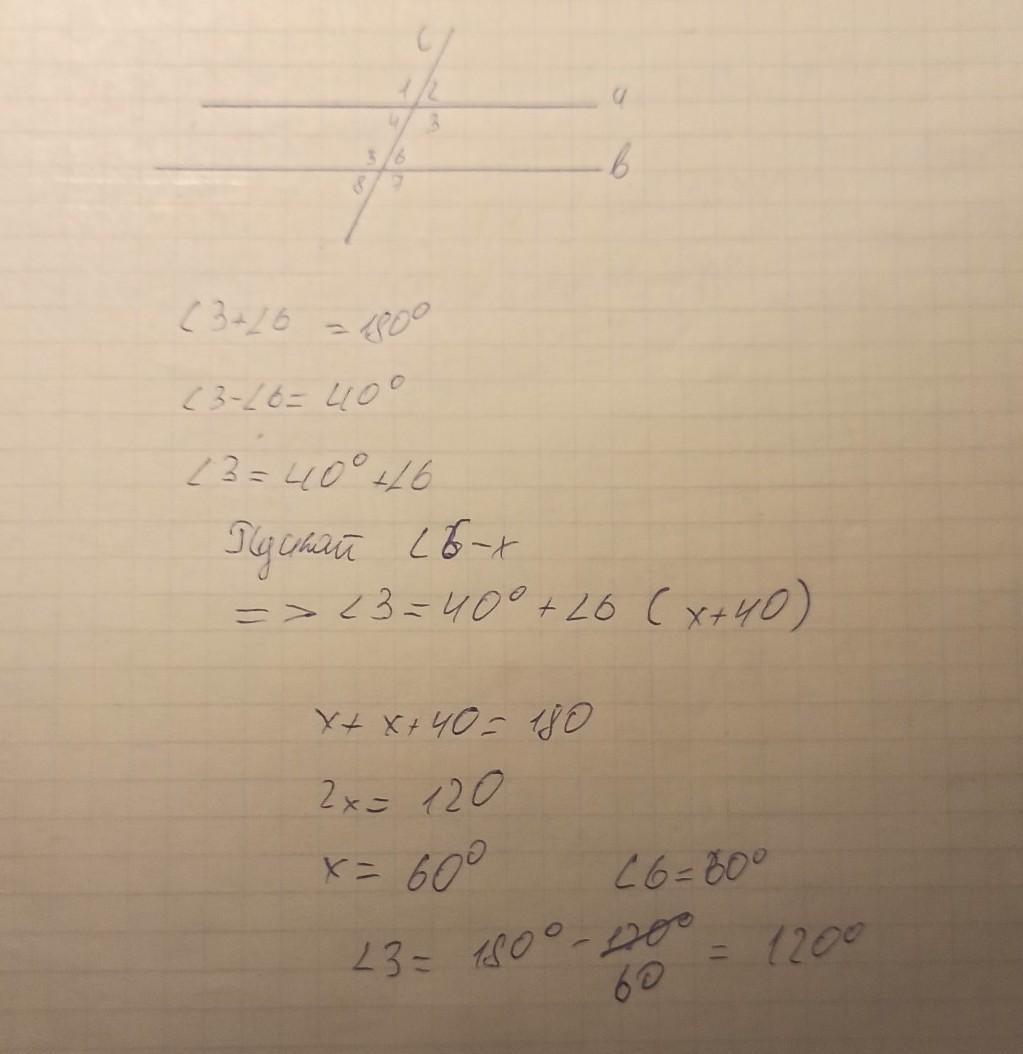 c
1 2 a
4 3
5 6 b
8 7
∠3+∠6 = 180°
∠3-∠6= 40°
∠3= 40° +∠6
Пускай ∠6-x
=> ∠3=40°+∠6 (x+40)
x+ x+40= 180
2x= 120
x= 60° ∠6=60°
∠3= 180° - 120° = 120°
60